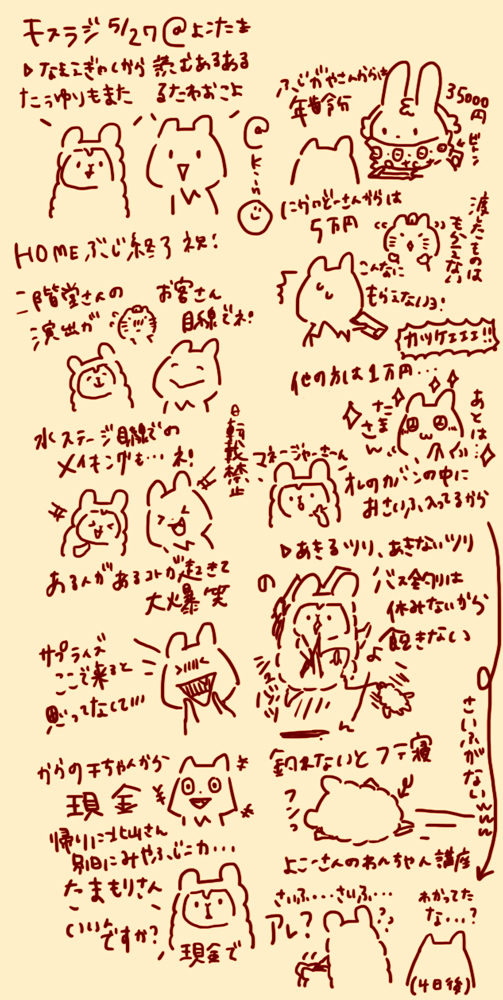 キスラジ 5/27@よこたま
▷なもこぎのくから 読むあるある
たっゆりもまた るたねおこよ
@k_i_n
HOMEぶじ終了 祝!
二階堂さんの
演出が
お客さん
目線でネ!
水ステージ目線での
メイキングも…ネ!
転載禁止
ある人があるコトが起きて
大爆笑
サプライズ
ここで来ると
思ってなくて!!!
からの千ちゃんから
現金
帰りに北山さん
別日にみやふじニカ…
たまもりさん
いいんですか?
現金で
ふじがやさんからは
年齢分
35000円
にかいどーさんからは
5万円
渡したものは
もらえない
こんなに
もらえないヨ!
カッケェェェ!!
他の方は1万円…
あとは…
たまさん
マネージャーさーん
オレのカバンの中に
おさいふ入ってるから
▷あきるツリ、あきないツリ
バス釣りは
休みないから
飽きない
さいふがないwww
釣れないとフテ寝
フンっ
よこーさんのわんちゃん講座
さいふ…さいふ…
アレ?
わかってた
な…?
(4日後)